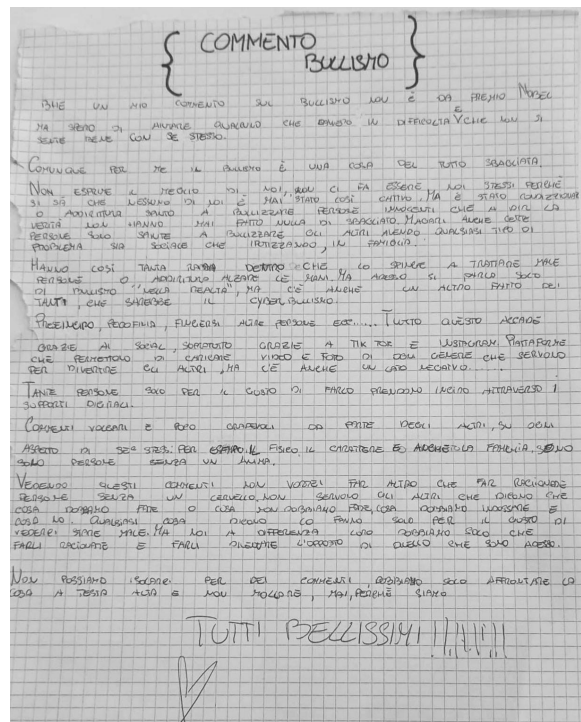 COMMENTO
BULLISMO
BHE UN MIO COMMENTO SUL BULLISMO NON È DA PREMIO NOBEL
MA SPERO DI AIUTARE QUALCUNO CHE DAVVERO IN DIFFICOLTÀ E CHE NON SI
SENTE BENE CON SE STESSO.
COMUNQUE PER ME IL BULLISMO È UNA COSA DEL TUTTO SBAGLIATA.
NON ESPRIME IL MEGLIO DI NOI, NON CI FA ESSERE NOI STESSI PERCHÈ
SI SÀ CHE NESSUNO DI NOI È MAI STATO COSÌ CATTIVO, MA È STATO CONDIZIONATO
O ADDIRITTURA SPINTO A BULLIZZARE PERSONE INNOCENTI CHE A DIR LA
VERITÀ NON HANNO MAI FATTO NULLA DI SBAGLIATO, MAGARI ANCHE CERTE
PERSONE SONO SPINTE A BULLIZZARE GLI ALTRI AVENDO QUALSIASI TIPO DI
PROBLEMA SIA SOCIALE CHE IN FAMIGLIA.
HANNO COSÌ TANTA RABBIA DENTRO CHE LO SPINGE A TRATTARE MALE
PERSONE O ADDIRITTURA ALZARE LE MANI, MA ADESSO SI PARLA SOLO
DI BULLISMO "NELLA REALTÀ", MA C'È ANCHE UN ALTRO FATTO DEI
TANTI, CHE SAREBBE IL CYBER BULLISMO.
PEDOFILIA, FINGERSI ALTRE PERSONE ECC..... TUTTO QUESTO ACCADE
GRAZIE AI SOCIAL, SOPRATUTTO GRAZIE A TIK TOK E INSTAGRAM. PIATTAFORME
CHE PERMETTONO DI CARICARE VIDEO E FOTO DI OGNI GENERE CHE SERVONO
PER DIVERTIRE GLI ALTRI, MA C'È ANCHE UN LATO NEGATIVO.....
TANTE PERSONE SOLO PER IL GUSTO DI FARLO PRENDONO IN GIRO ATTRAVERSO I
SUPPORTI DIGITALI.
COMMENTI VOLGARI E POCO GRADEVOLI DA PARTE DEGLI ALTRI, SU OGNI
ASPETTO DI SE STESSI PER ESEMPIO IL FISICO, IL CARATTERE ED ANCHE LA FAMIGLIA. SONO
SOLO PERSONE SENZA UN ANIMA.
VEDENDO QUESTI COMMENTI NON VORREI FAR ALTRO CHE FAR RAGIONARE
PERSONE SENZA UN CERVELLO, NON SERVONO GLI ALTRI CHE DICONO CHE
COSA DOBBIAMO FARE O COSA NON DOBBIAMO FARE, COSA DOBBIAMO INDOSSARE E
COSA NO. QUALSIASI COSA DICONO LO FANNO SOLO PER IL GUSTO DI
VEDERCI STARE MALE. MA NOI A DIFFERENZA LORO DOBBIAMO SOLO
FARLI RAGIONARE E FARLI DIVENTARE L'OPPOSTO DI QUELLO CHE SONO ADESSO.
NON POSSIAMO ISOLARCI PER DEI COMMENTI, DOBBIAMO SOLO AFFRONTARE LA
COSA A TESTA ALTA E NON MOLLARE, MAI, PERCHÈ SIAMO
TUTTI BELLISSIMI !!!!!!!!!